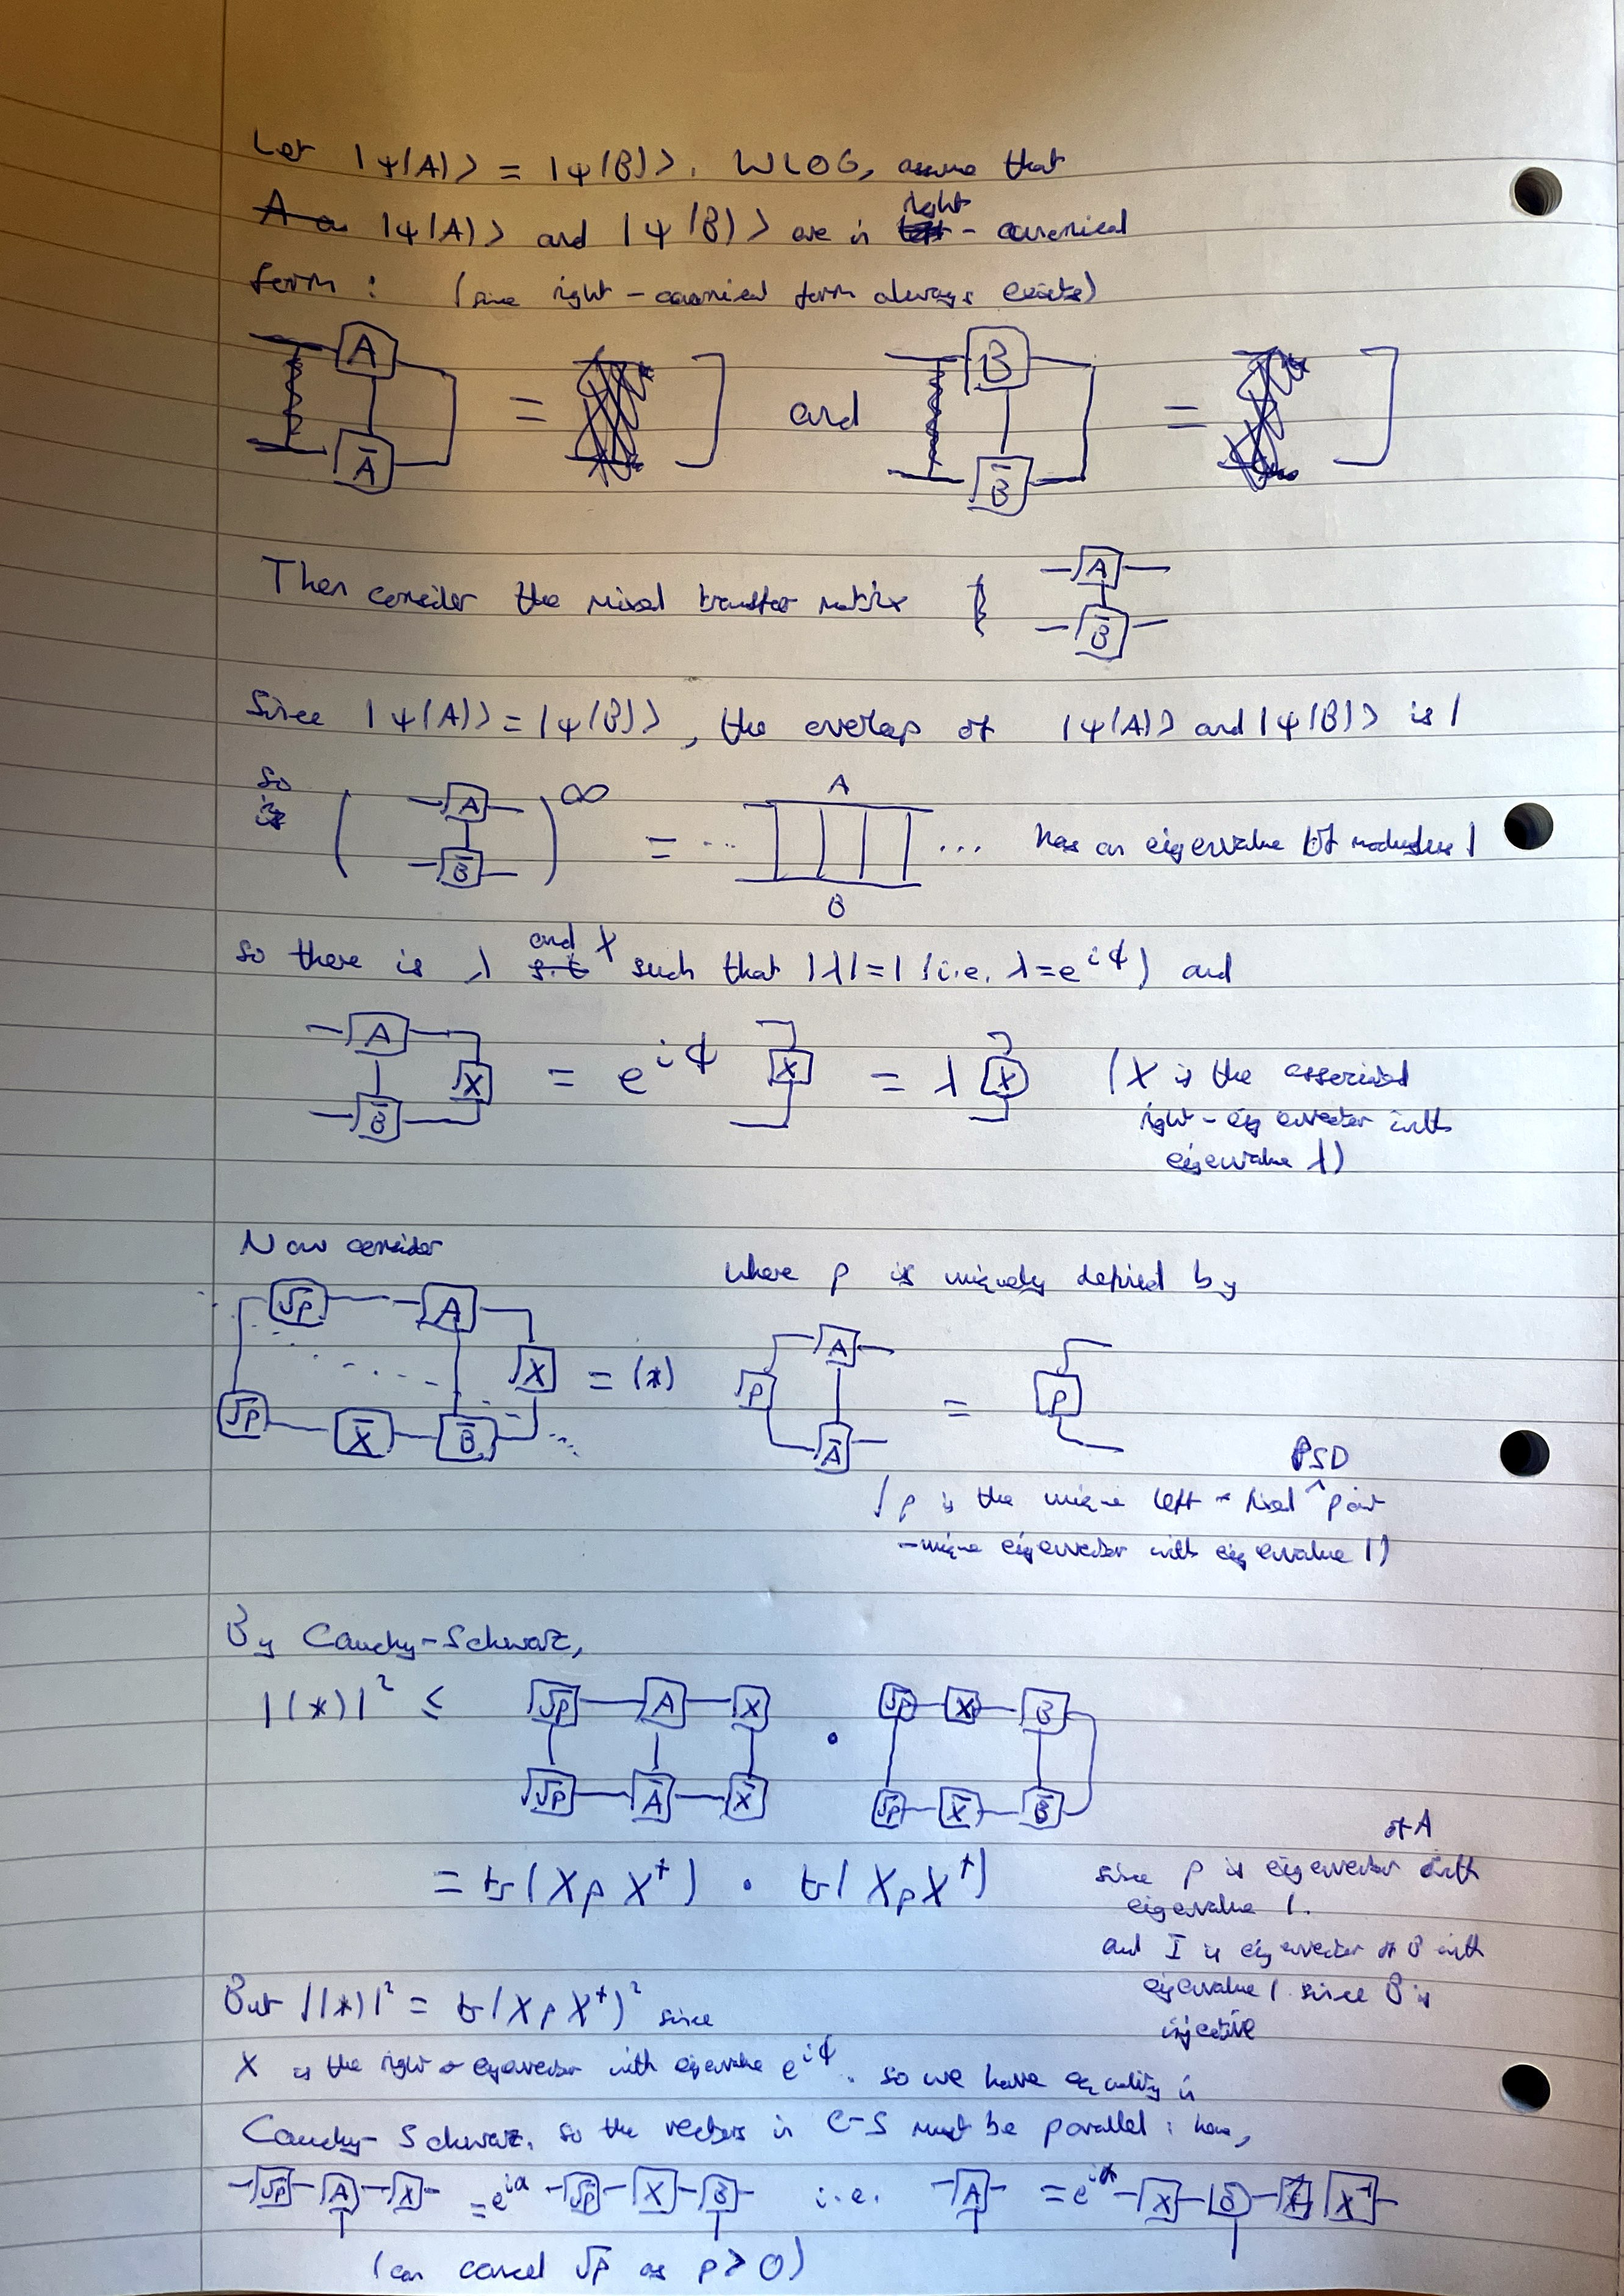 Let |ψ(A)⟩ = |ψ(B)⟩. WLOG, assume that
|ψ(A)⟩ and |ψ(B)⟩ are in right - canonical
form : (since right - canonical form always exists)
A = and B =
Ā B̄
Then consider the mixed transfer matrix
A
B̄
Since |ψ(A)⟩ = |ψ(B)⟩, the overlap of |ψ(A)⟩ and |ψ(B)⟩ is 1
so
( A B̄ )^∞ = ... A B ... has an eigenvalue of modulus 1
so there is λ and X such that |λ|=1 (i.e. λ=e^{iφ}) and
A X B̄ = e^{iφ} X = λ X (X is the associated
right - eigenvector with
eigenvalue λ)
Now consider
where ρ is uniquely defined by
√ρ A X = (*)
√ρ X̄ B̄
ρ A Ā = ρ
(ρ is the unique left - fixed PSD point
- unique eigenvector with eigenvalue 1)
By Cauchy-Schwarz,
|(*)|² ≤ √ρ A X · √ρ X B
√ρ Ā X̄ √ρ X̄ B̄
= tr(XρX†) · tr(XρX†)
since ρ is eigenvector of A with
eigenvalue 1.
and I is eigenvector of B with
eigenvalue 1 since B is
injective
But |(*)|² = tr(XρX†)² since
X is the right eigenvector with eigenvalue e^{iφ}. so we have equality in
Cauchy-Schwarz, so the vectors in C-S must be parallel : hence,
√ρ A X = e^{iα} √ρ X B i.e. A = e^{iα} X B X⁻¹
(can cancel √ρ as ρ > 0)